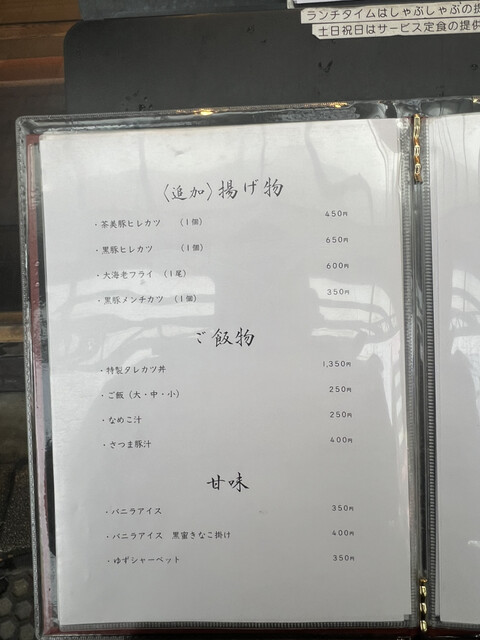 ランチタイムはしゃぶしゃぶの提
土日祝日はサービス定食の提供
〈追加〉揚げ物
・茶美豚ヒレカツ （1個） 450円
・黒豚ヒレカツ （1個） 650円
・大海老フライ （1尾） 600円
・黒豚メンチカツ （1個） 350円
ご飯物
・特製タレカツ丼 1,350円
・ご飯（大・中・小） 250円
・なめこ汁 250円
・さつま豚汁 400円
甘味
・バニラアイス 350円
・バニラアイス 黒蜜きなこ掛け 400円
・ゆずシャーベット 350円